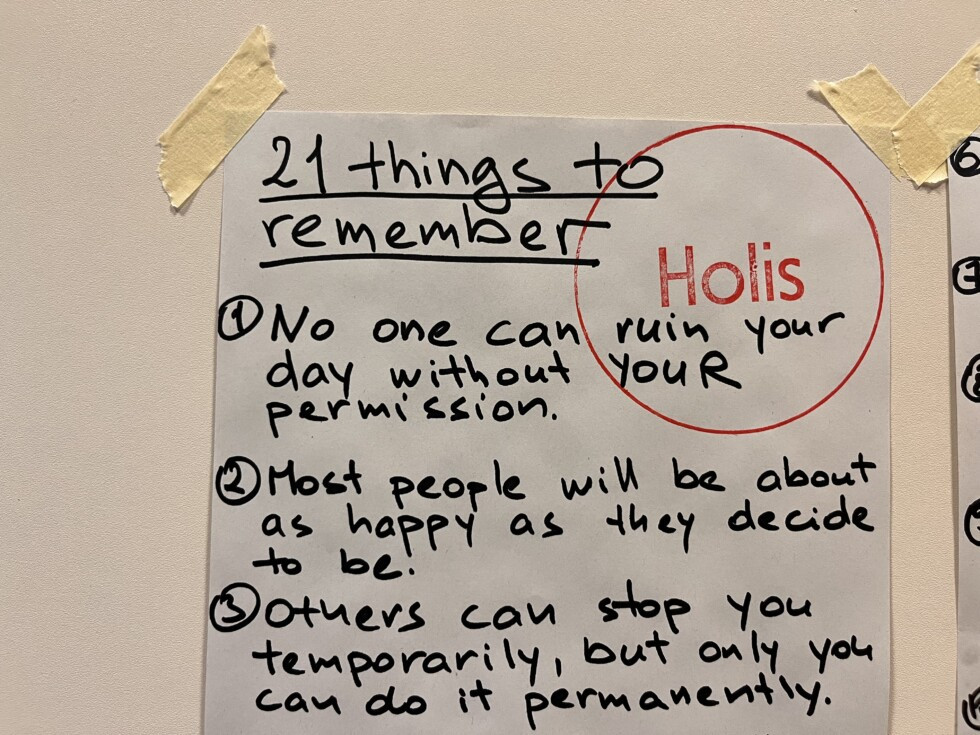 21 things to
remember
Holis
① No one can ruin your
day without YOUR
permission.
② Most people will be about
as happy as they decide
to be.
③ Others can stop you
temporarily, but only you
can do it permanently.
6